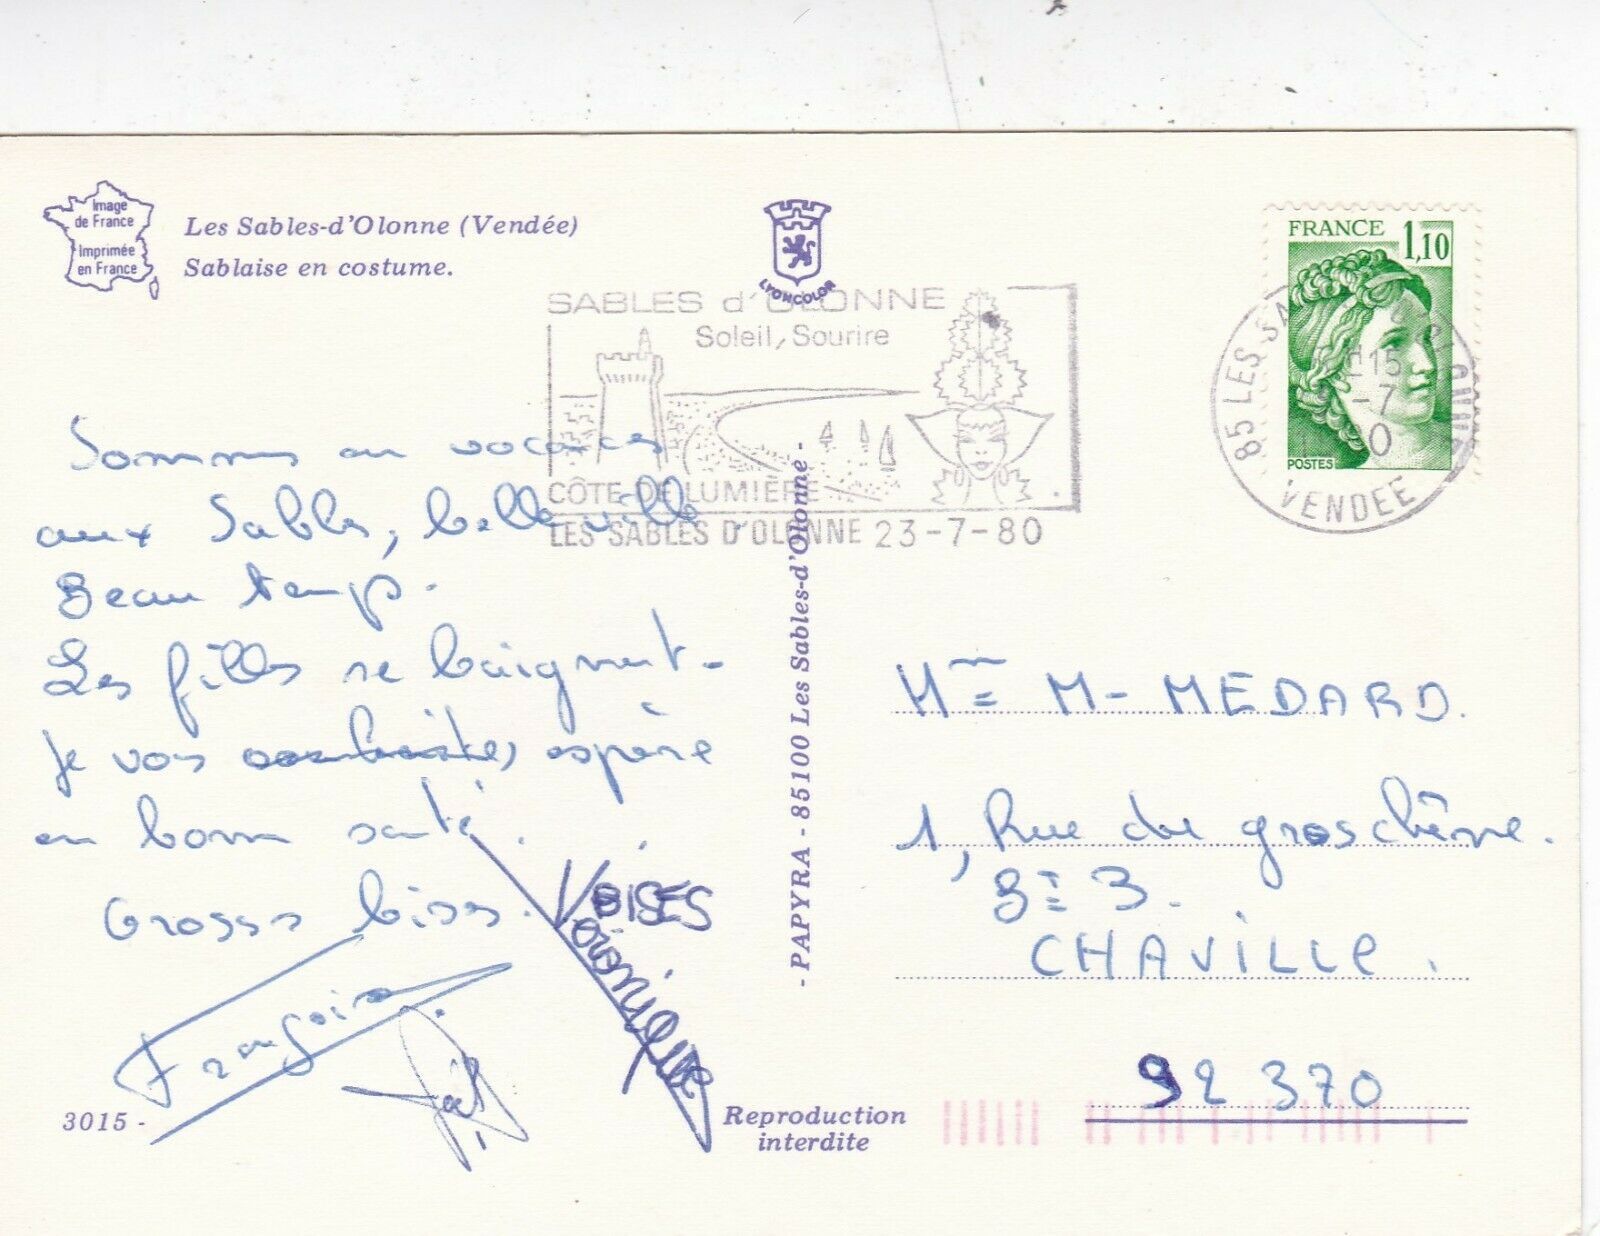 Image
de France
Imprimée
en France
Les Sables-d'Olonne (Vendée)
Sablaise en costume.
LYONCOLOR
SABLES d'OLONNE
Soleil, Sourire
CÔTE DE LUMIÈRE
LES SABLES D'OLONNE 23-7-80
FRANCE 1,10
POSTES
85 LES SABLES D'OLONNE
15
-7
0
VENDEE
Sommes en vacances
aux Sables, belle ville.
Beau temps.
Les filles se baignent.
Je vous espère
en bonne santé.
Grosses bises.
Françoise
BISES
Véronique
- PAPYRA - 85100 Les Sables-d'Olonne -
Mme M- MEDARD.
1, Rue du gros chêne.
Bt 3.
CHAVILLE.
92 370
3015 -
Reproduction
interdite